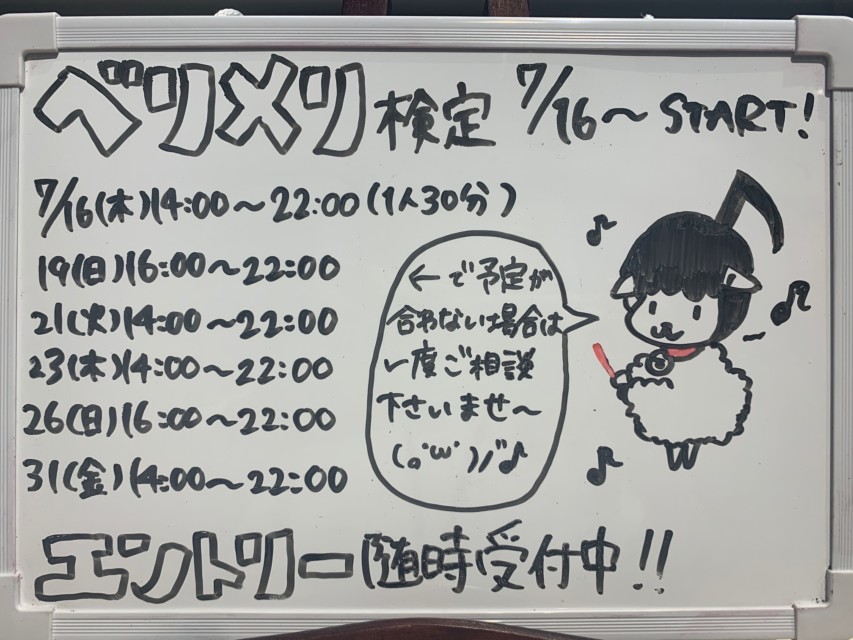 ベリメリ検定 7/16～START!
7/16(木)14:00～22:00(1人30分)
19(日)16:00～22:00
21(火)14:00～22:00
23(木)14:00～22:00
26(日)16:00～22:00
31(金)14:00～22:00
←で予定が
合わない場合は
一度ご相談
下さいませ～
(｡'ω')ﾉﾞ♪
エントリー随時受付中!!